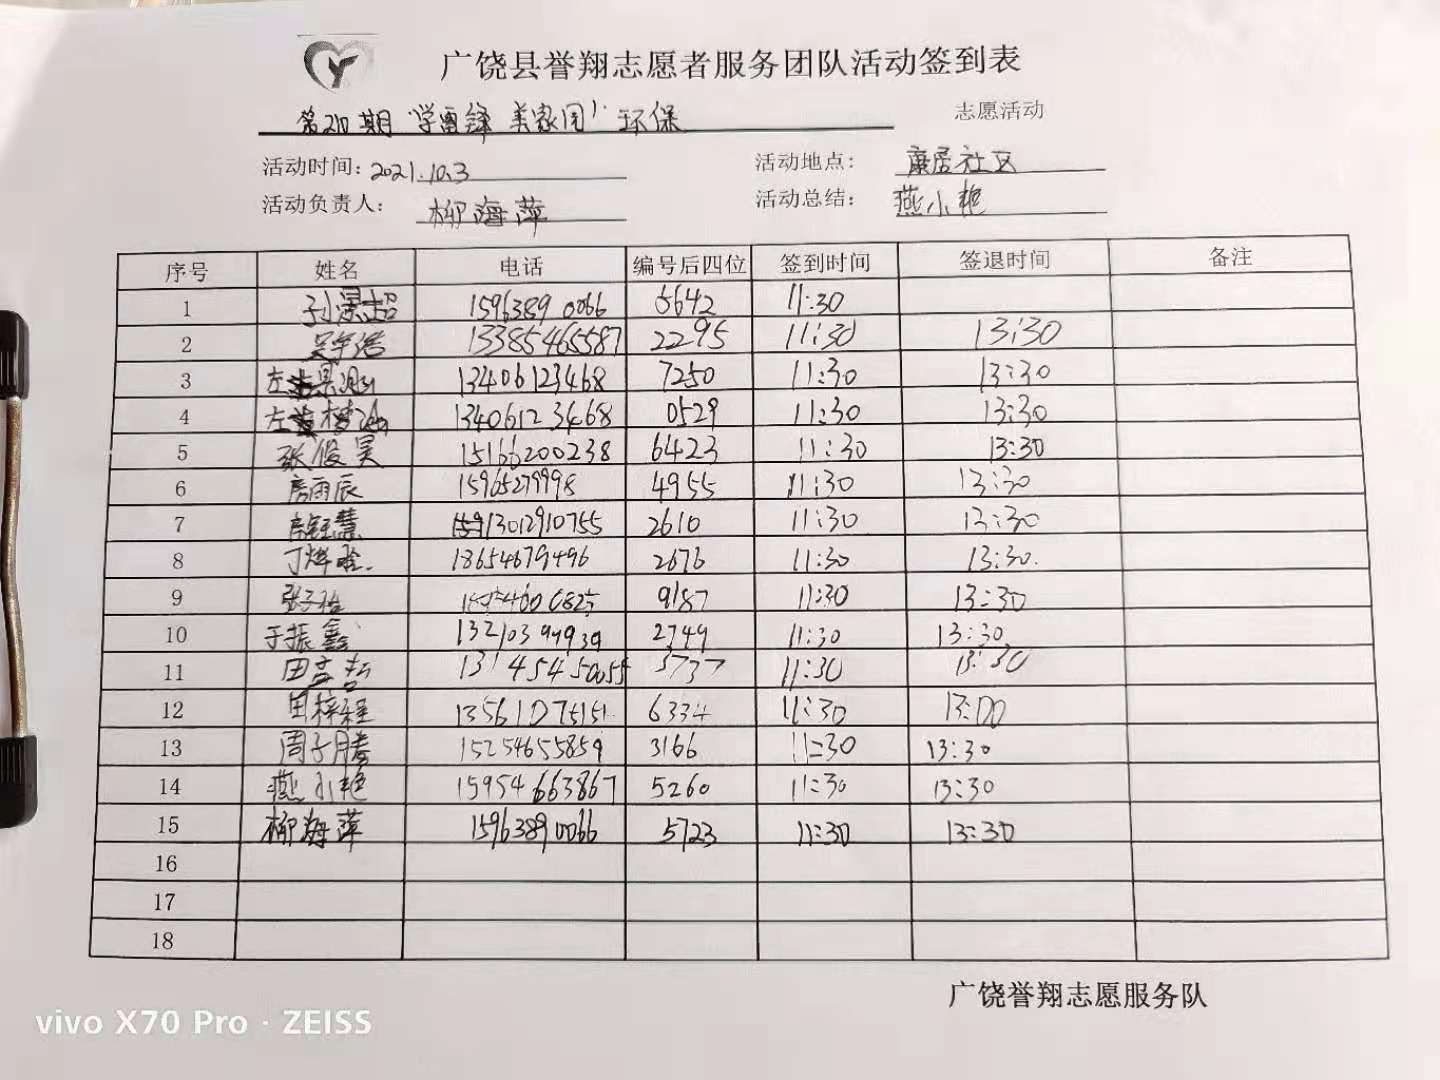 广饶县誉翔志愿者服务团队活动签到表
第210期“学雷锋 美家园”环保 志愿活动
活动时间：2021.10.3 活动地点： 康居社区
活动负责人： 柳海萍 活动总结： 燕小艳
序号 姓名 电话 编号后四位 签到时间 签退时间 备注
1 15963890066 5642 11:30
2 吴宇浩 13385465587 2295 11:30 13:30
3 左 13406123468 7250 11:30 13:30
4 左 13406123468 0529 11:30 13:30
5 张俊昊 15166200238 6423 11:30 13:30
6 房雨辰 15965279998 4955 11:30 13:30
7 房钰慧 13012910755 2610 11:30 13:30
8 丁烨晗 18654679496 2676 11:30 13:30
9 张子怡 9187 11:30 13:30
10 于振鑫 2749 11:30 13:30
11 田 13145450055 3737 11:30 13:30
12 田梓程 13561075151 6334 11:30 13:00
13 周子腾 15254655859 3166 11:30 13:30
14 燕小艳 15954663867 5260 11:30 13:30
15 柳海萍 15963890066 5723 11:30 13:30
16
17
18
广饶誉翔志愿服务队
vivo X70 Pro · ZEISS